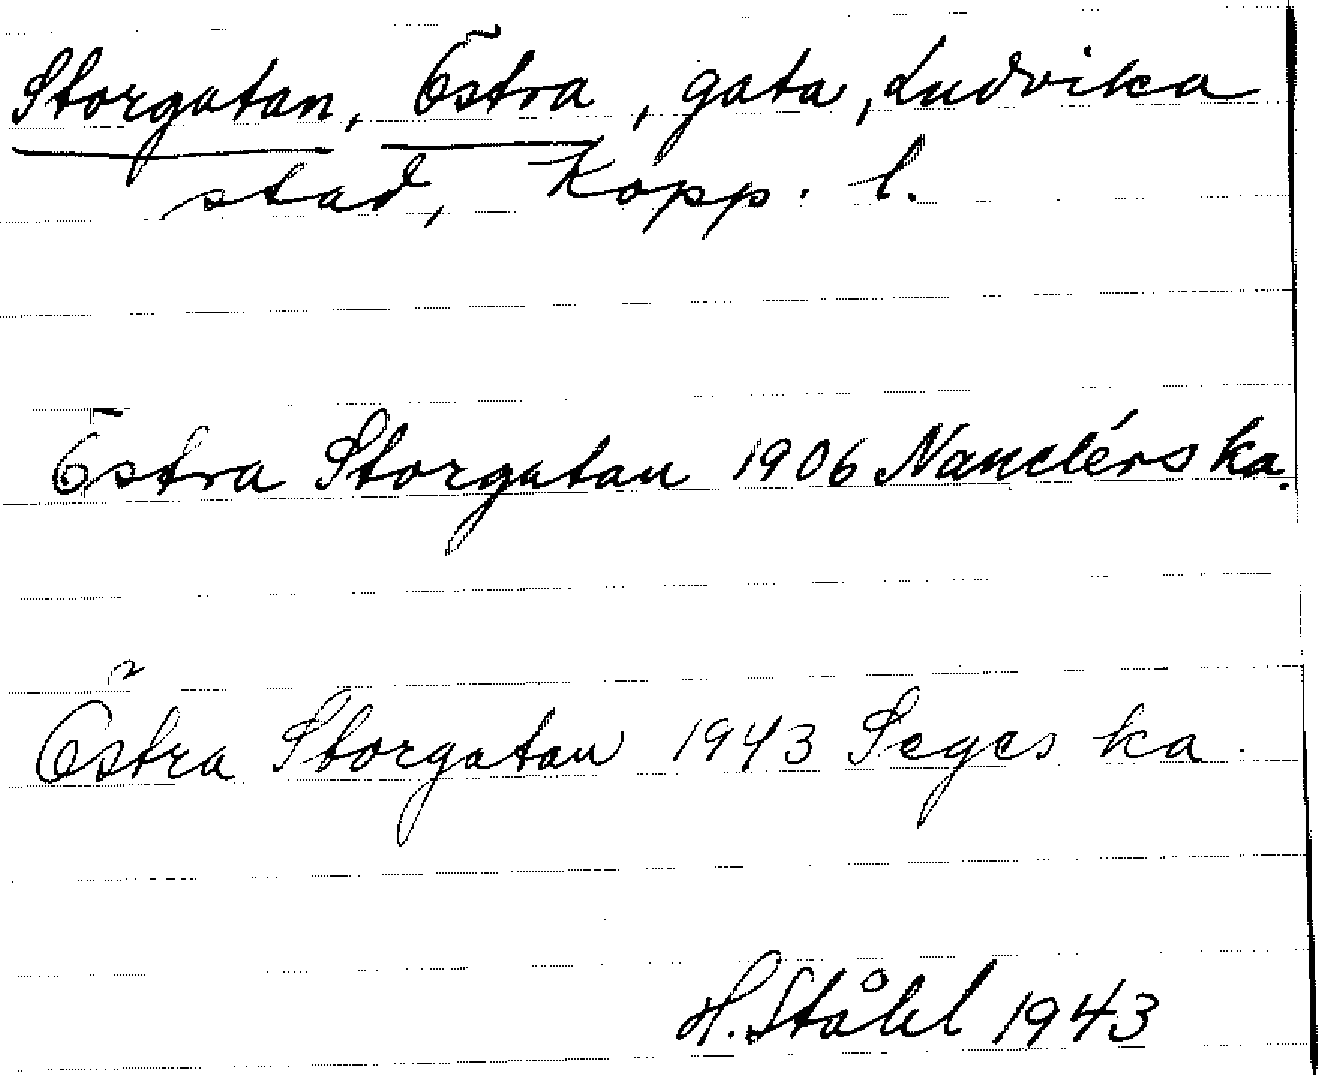 Storgatan, Östra, gata, Ludvika
stad, Kopp. l.
Östra Storgatan 1906 Nauclérs ka.
Östra Storgatan 1943 Seges ka.
H. Ståhl 1943